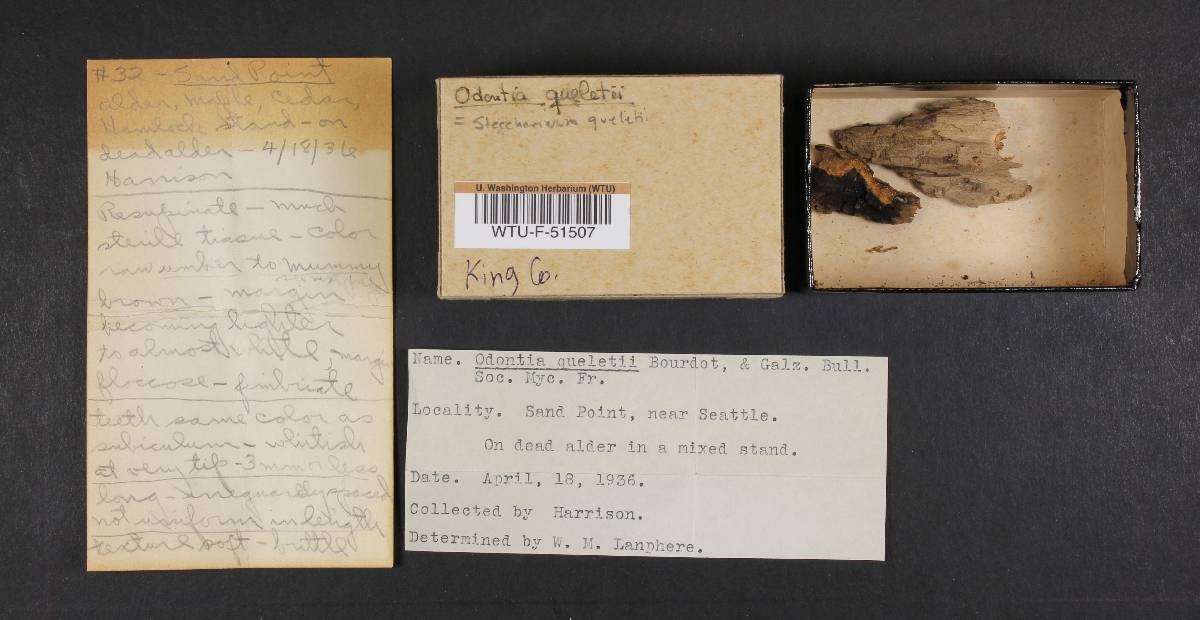 #32 - Sand Point
alder, maple, cedar,
Hemlock stand - on
dead alder - 4/18/36
Harrison
Resupinate - much
sterile tissue - color
raw umber to mummy
brown - margin
becoming lighter
to almost white - margin
floccose - fimbriate
teeth same color as
subiculum - whitish
at very tip - 3 mm or less
long - irreguarlly spaced
not uniform in length
texture soft - brittle
Odontia queletii
= Steccherinum queleti
U. Washington Herbarium (WTU)
WTU-F-51507
King Co.
Name. Odontia queletii Bourdot, & Galz. Bull.
Soc. Myc. Fr.
Locality. Sand Point, near Seattle.
On dead alder in a mixed stand.
Date. April, 18, 1936.
Collected by Harrison.
Determined by W. M. Lanphere.